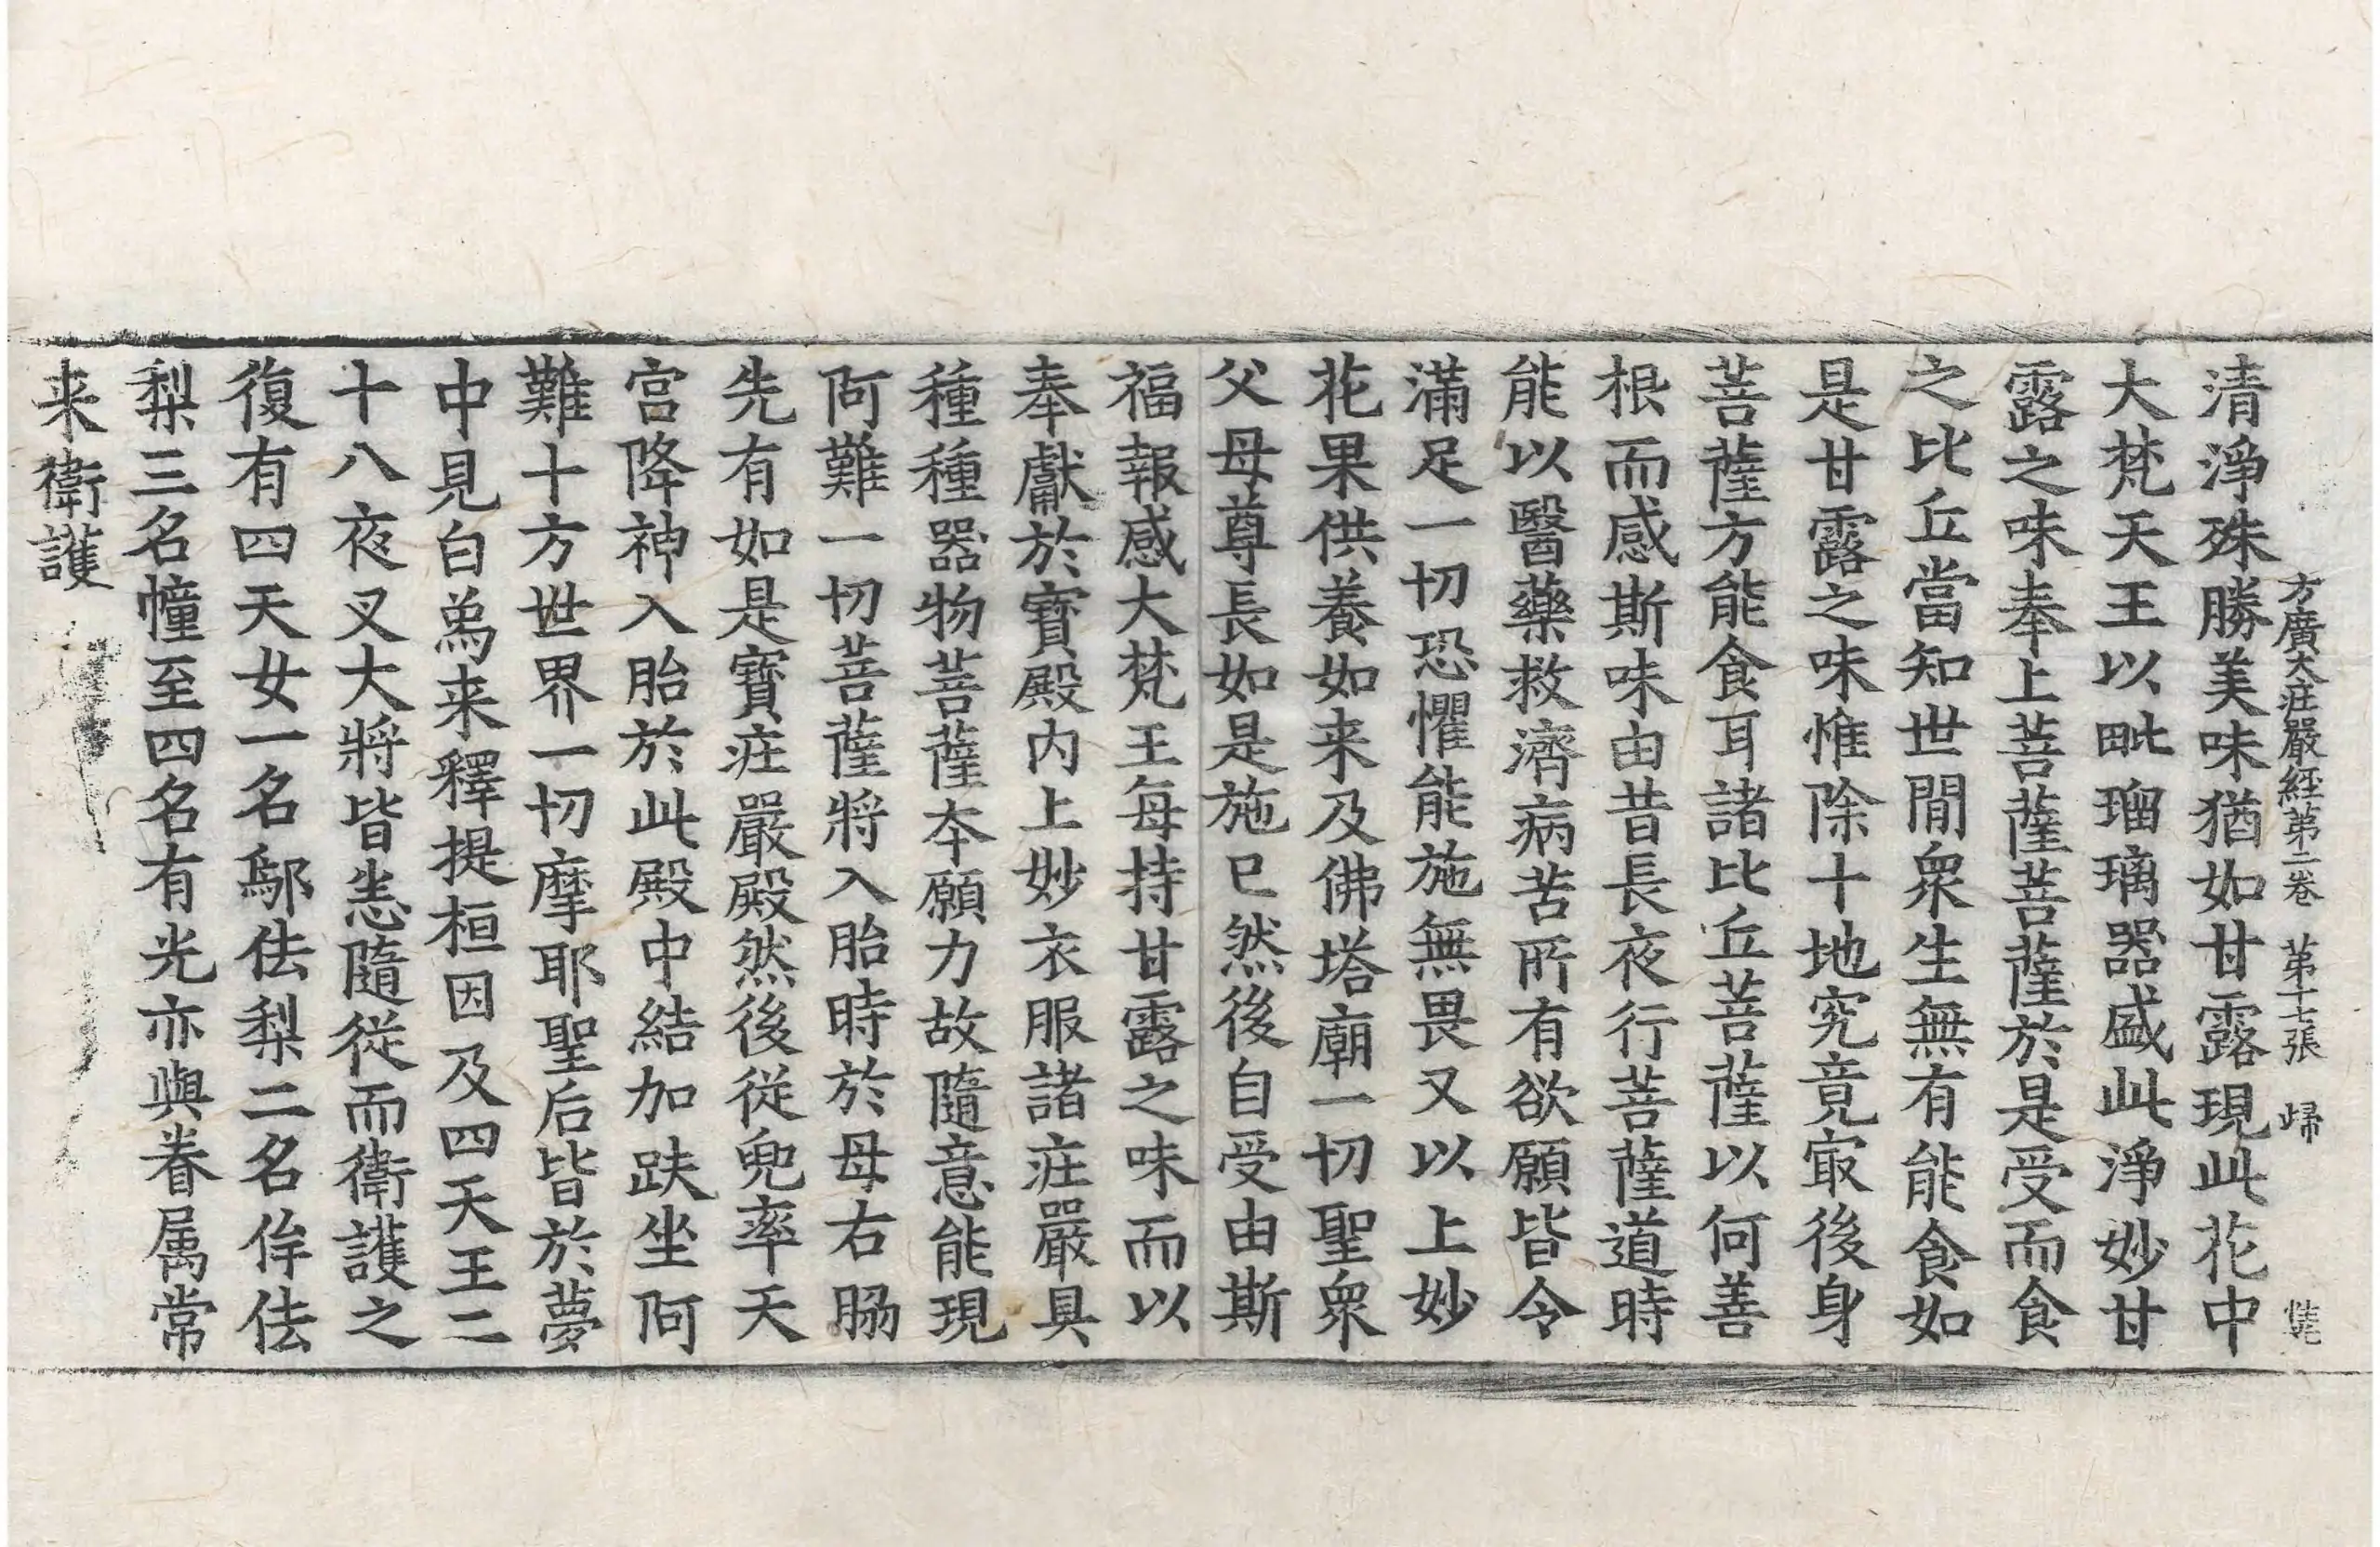 方廣大庄嚴経第二卷 第十七張 歸
清淨殊勝美味猶如甘露現此花中
大梵天王以毗瑠璃器盛此淨妙甘
露之味奉上菩薩菩薩於是受而食
之比丘當知世閒衆生無有能食如
是甘露之味惟除十地究竟㝡後身
菩薩方能食耳諸比丘菩薩以何善
根而感斯味由昔長夜行菩薩道時
能以醫藥救濟病苦所有欲願皆令
滿足一切恐懼能施無畏又以上妙
花果供養如来及佛塔廟一切聖衆
父母尊長如是施已然後自受由斯
福報感大梵王每持甘露之味而以
奉獻於寶殿内上妙衣服諸庄嚴具
種種器物菩薩本願力故隨意能現
阿難一切菩薩將入胎時於母右脇
先有如是寶庄嚴殿然後從兜率天
宮降神入胎於此殿中結加趺坐阿
難十方世界一切摩耶聖后皆於夢
中見白為来釋提桓因及四天王二
十八夜叉大將皆悉隨從而衛護之
復有四天女一名鄔佉梨二名侔佉
梨三名幢至四名有光亦與眷属常
来衛護